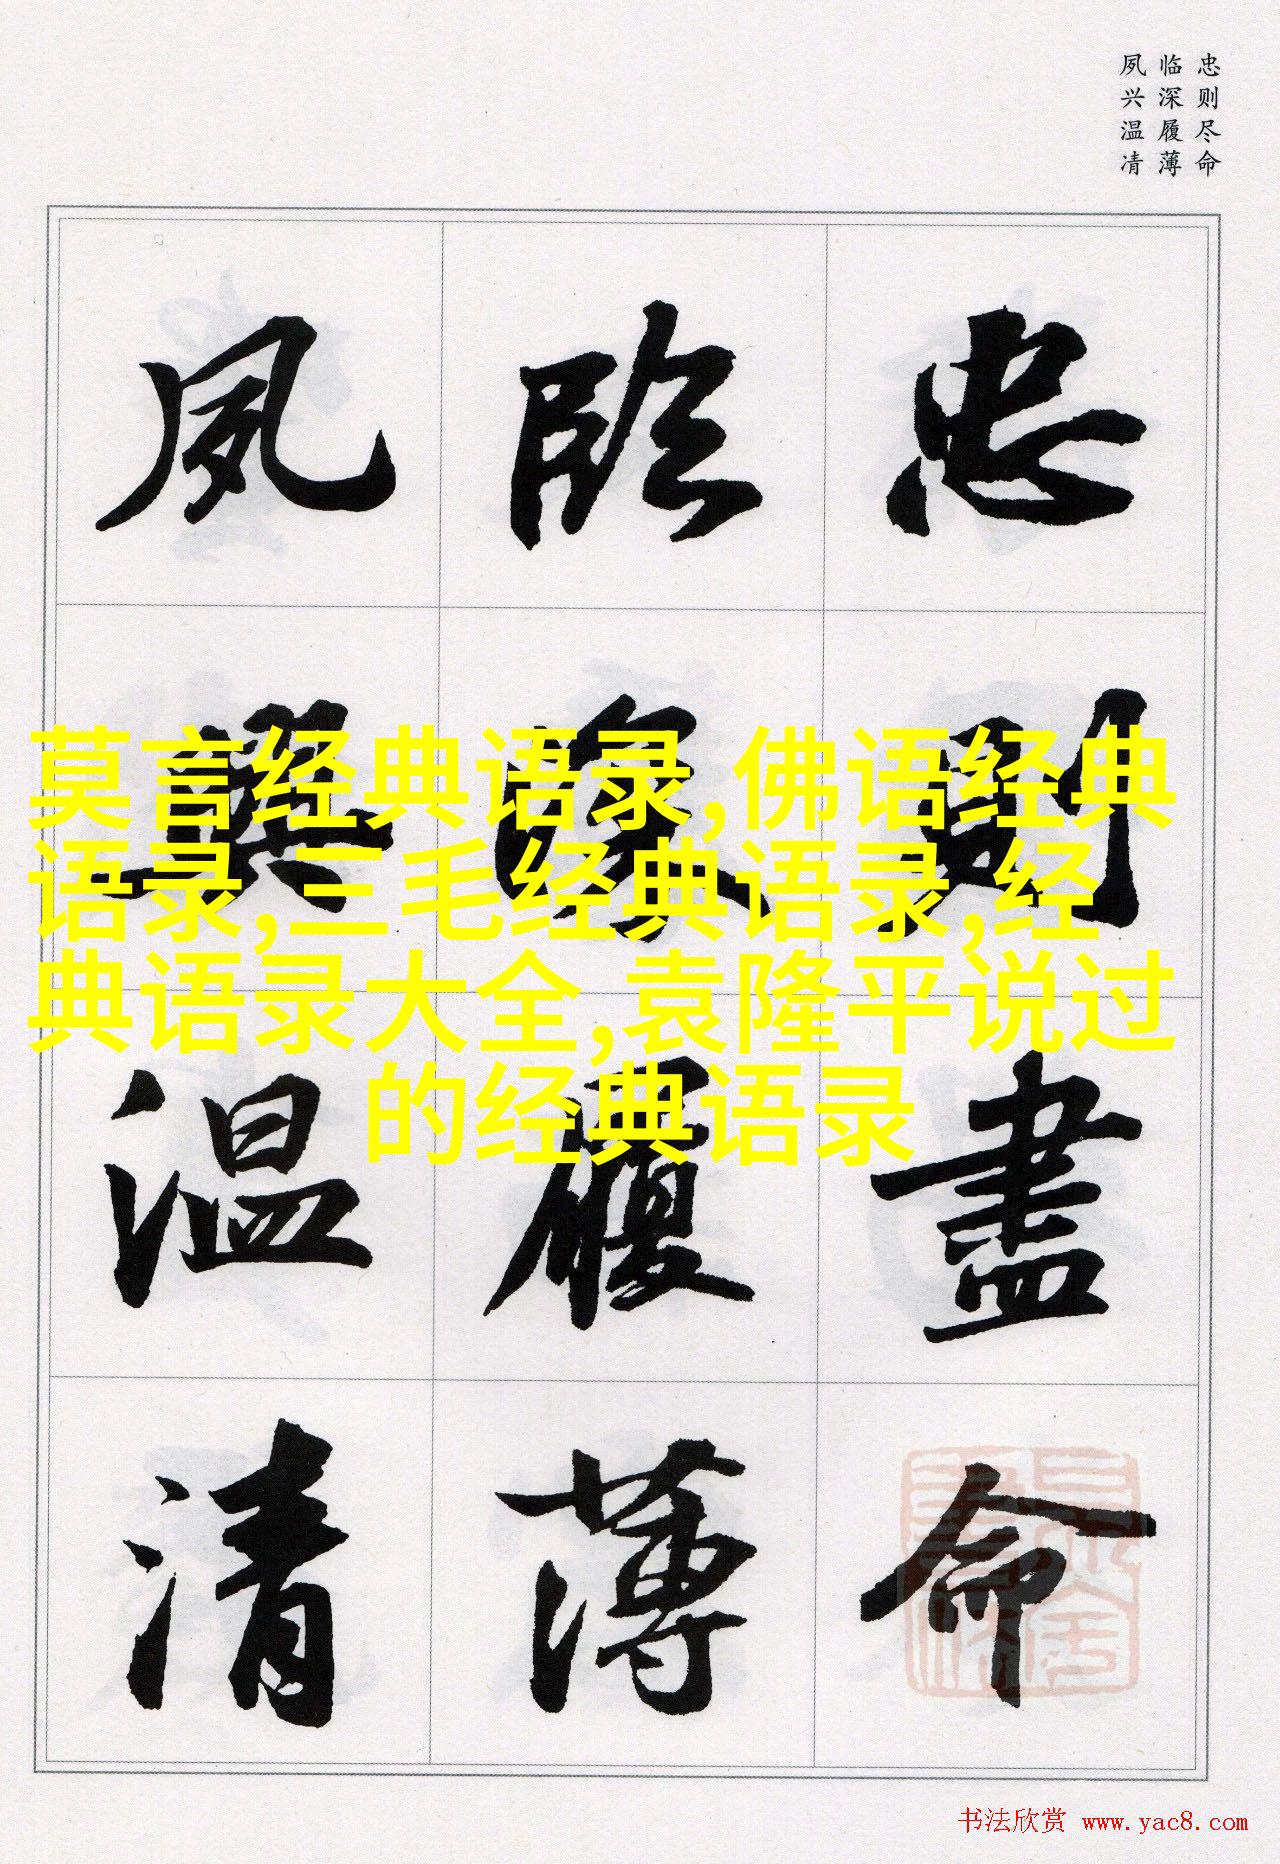 忠则尽命
临深履薄
夙兴温凊
忠則盡命
臨深履薄
夙興温清
莫言经典语录,佛语经典
语录,三毛经典语录,经
典语录大全,袁隆平说过
的经典语录
书法欣赏 www.yac8.com